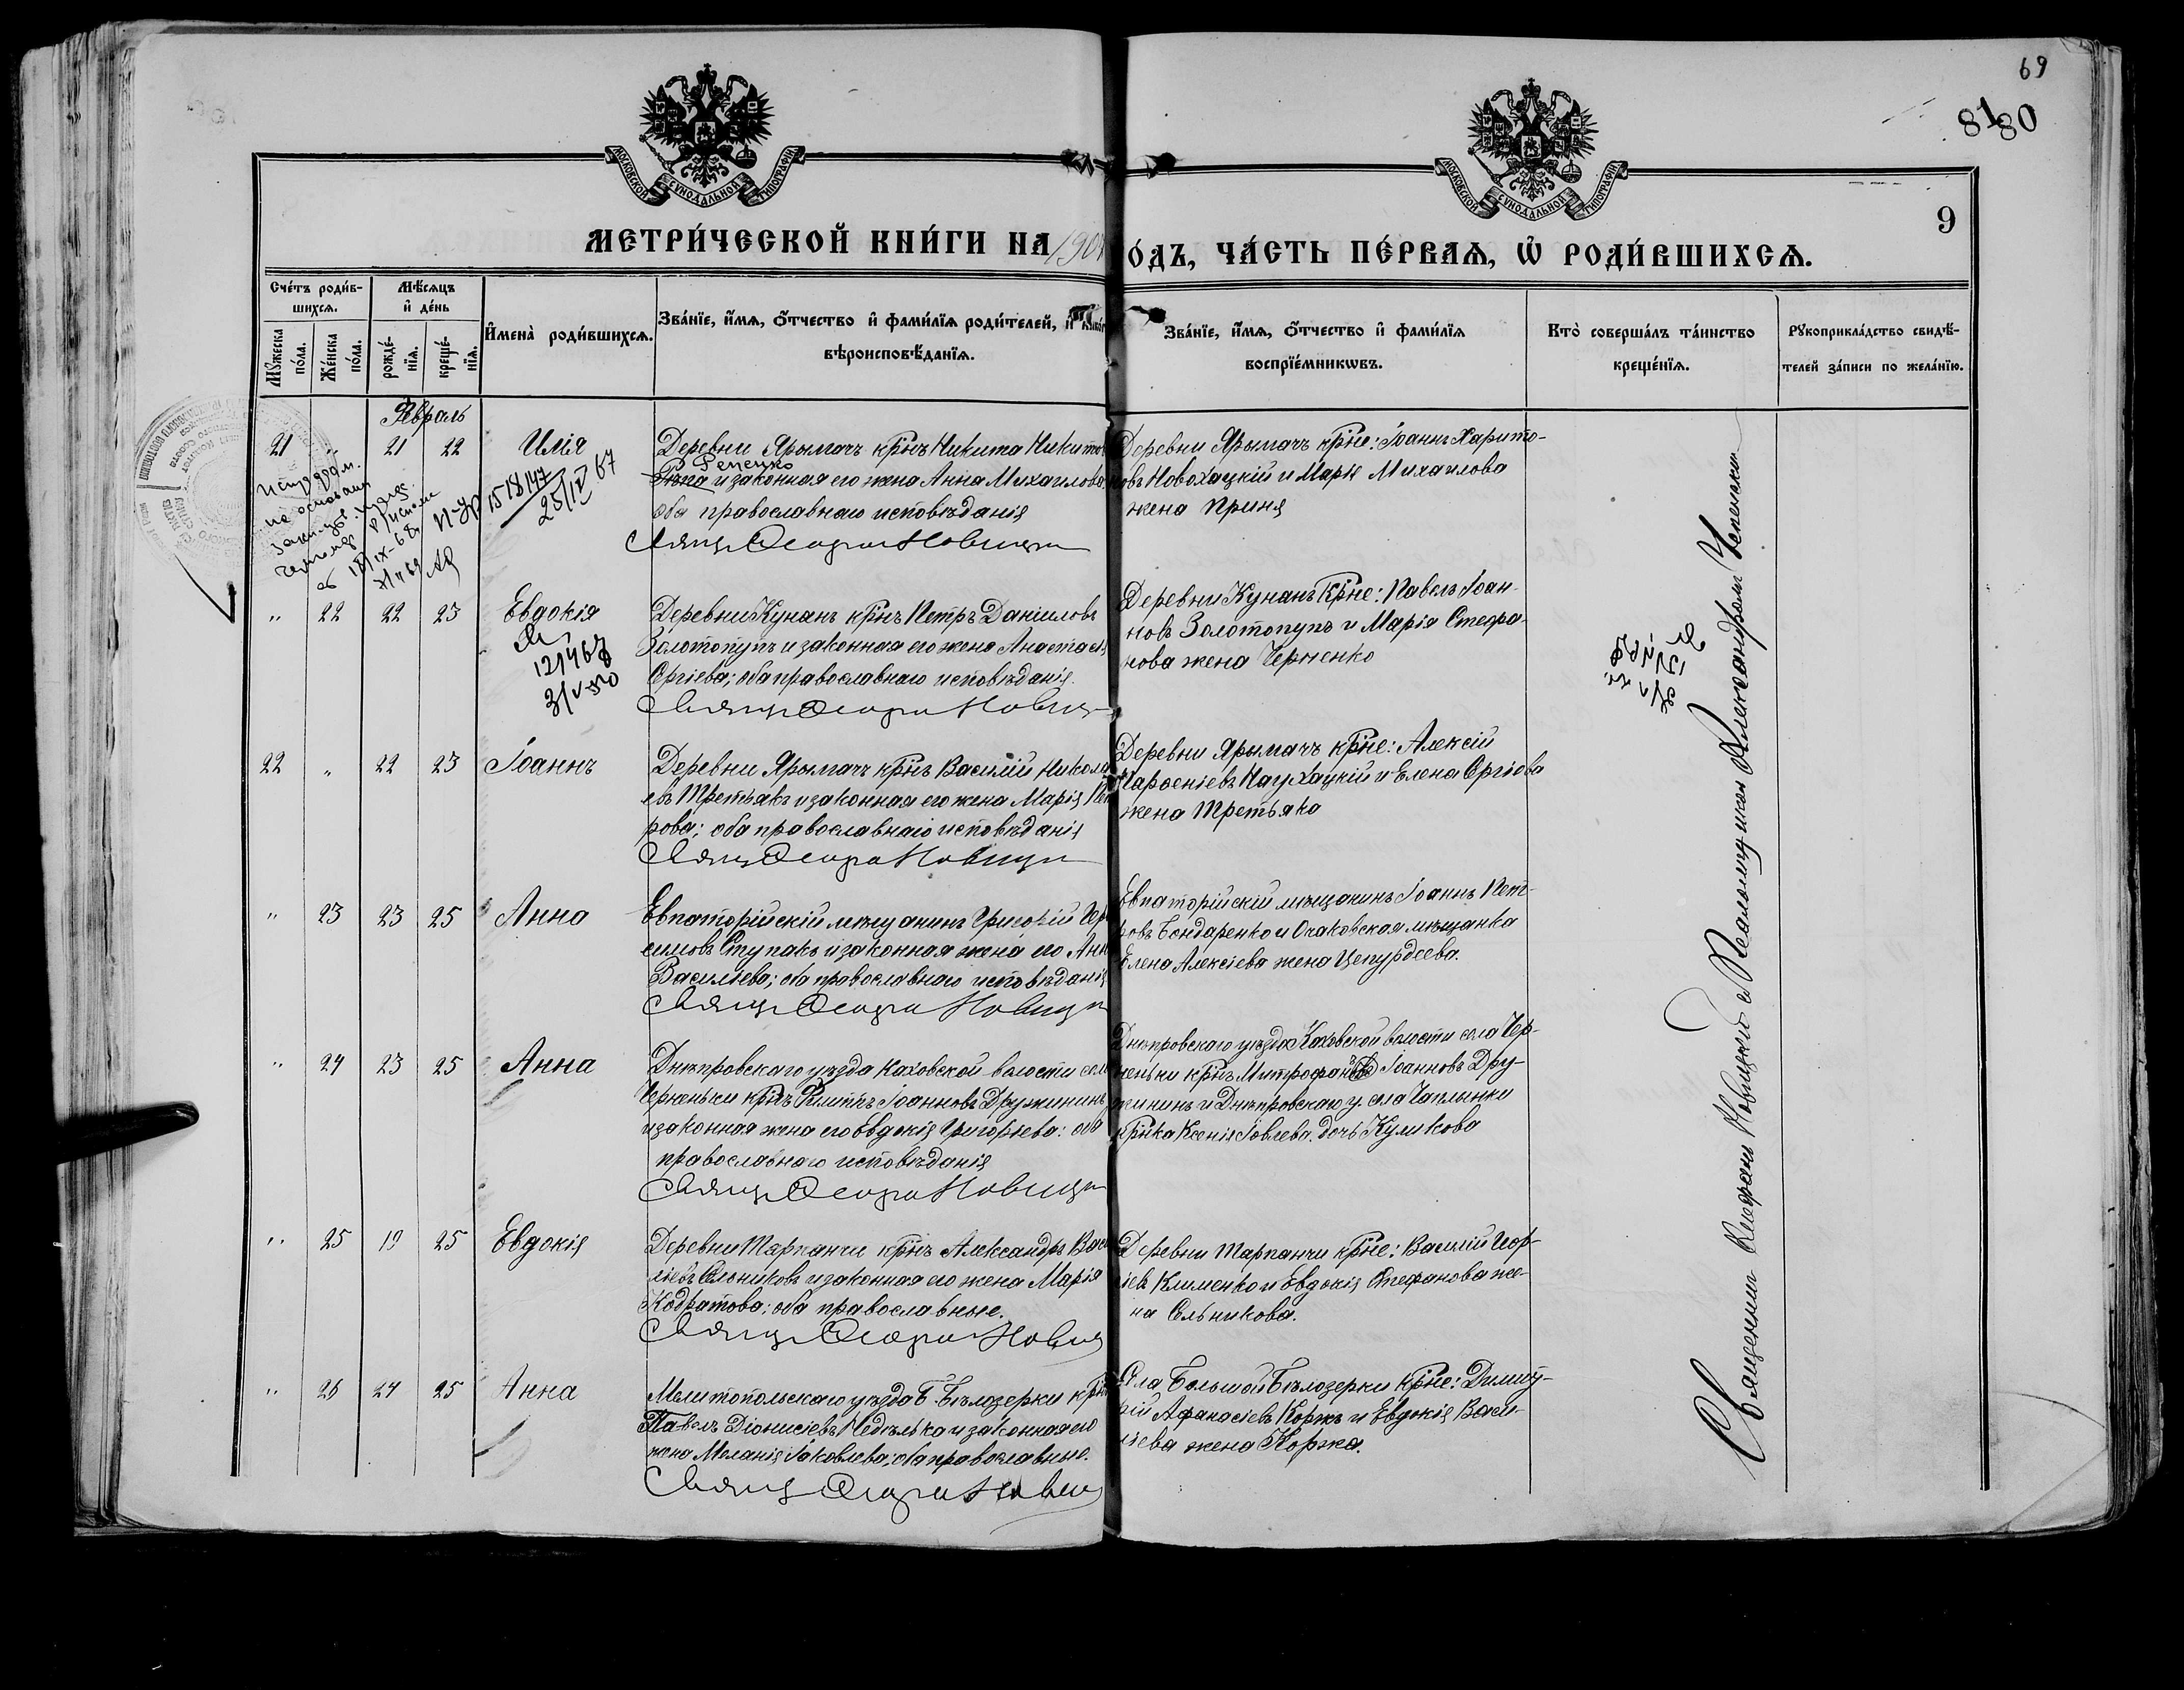 69
81 80
9
МОСКОВСКОЙ СѴНОДАЛЬНОЙ ТИПОГРАФІИ
МОСКОВСКОЙ СѴНОДАЛЬНОЙ ТИПОГРАФІИ
МЕТРИ́ЧЕСКОЙ КНИ́ГИ НА 190
О́ДЪ, ЧА́СТЬ ПЕ́РВАѦ, Ѿ РОДИ́ВШИХСѦ.
Сче́тъ роди́в-
шихсѧ.
Мѣ́сѧцъ
и҆ де́нь
Мꙋ́жеска по́ла.
Же́нска по́ла.
рожде́-
нїѧ.
креще́-
нїѧ.
И҆мена̀ роди́вшихсѧ.
Зва́нїе, и҆́мѧ, ѻ҆́тчество и҆ фами́лїѧ роди́телей, и҆
вѣроисповѣ́данїѧ.
Зва́нїе, и҆́мѧ, ѻ҆́тчество и҆ фами́лїѧ
воспрїе́мникѡвъ.
Кто̀ соверша́лъ та́инство
креще́нїѧ.
Рꙋкоприкла́дство свидѣ́-
телей за́писи по жела́нїю.
Февраль
21 " 21 22 Илія
Деревни Ярымачъ крнъ Никита Никито
Репецко
Рѣпа и законная его жена Анна Михаилова
оба православнаго исповѣданія
Деревни Ярымачъ крне: Іоаннъ Харито-
новъ Новохацкій и Марія Михаилова
жена
на основании
1518147
25/IV 67
" 22 22 23 Евдокія
121467
Деревни Кунанъ крнъ Петръ Даніиловъ
Золотопупъ и законная его жена Анастасія
Сергіева; оба православнаго исповѣданія.
Деревни Кунанъ крне: Павелъ Іоан-
новъ Золотопупъ и Марія Стефа-
нова жена Черненко
22 " 22 23 Іоаннъ
Деревни Ярымачъ крнъ Василій Никола
евъ Третьякъ и законная его жена Марія Пет
рова; оба православнаго исповѣданія
Деревни Ярымачъ крне: Алексій
Парѳеніевъ Наухацкій и Елена Сергіева
жена Третьяка
" 23 23 25 Анна
Евпаторійскій мѣщанинъ Григорій Гера
симовъ Ступакъ и законная жена его Анна
Васильева; оба православнаго исповѣданія
Евпаторійскій мѣщанинъ Іоаннъ Пет-
ровъ Бондаренко и Очаковская мѣщанка
Елена Алексіева жена Цепурдеева.
" 24 23 25 Анна
Днѣпровскаго уѣзда Каховской волости села
Черненьки крнъ Филиппъ Іоанновъ Дружининъ
и законная жена его Евдокія Григорьева: оба
православнаго исповѣданія
Днѣпровскаго уѣзда Каховской волости села Чер-
неньки крнъ Митрофанъ Іоанновъ Дру-
жининъ и Днѣпровскаго у. села Чаплинки
крнка Ксенія Іовлева дочь Куликова
" 25 19 25 Евдокія
Деревни Тарпанчи крнъ Александръ Васи
льевъ Сельниковъ и законная его жена Марія
Кодратова; оба православные.
Деревни Тарпанчи крне: Василій Геор-
гіевъ Клименко и Евдокія Стефанова же-
на Сельникова.
" 26 24 25 Анна
Мелитопольскаго уѣзда Б. Бѣлозерки крнъ
Павелъ Діонисіевъ Недѣлька и законная его
жена Меланія Іаковлева; оба православные.
Села Большой Бѣлозерки крне: Димит-
рій Афанасіевъ Коржъ и Евдокія Васи-
ліева жена Коржа.
Священникъ Новицкій съ Псаломщикомъ Александромъ